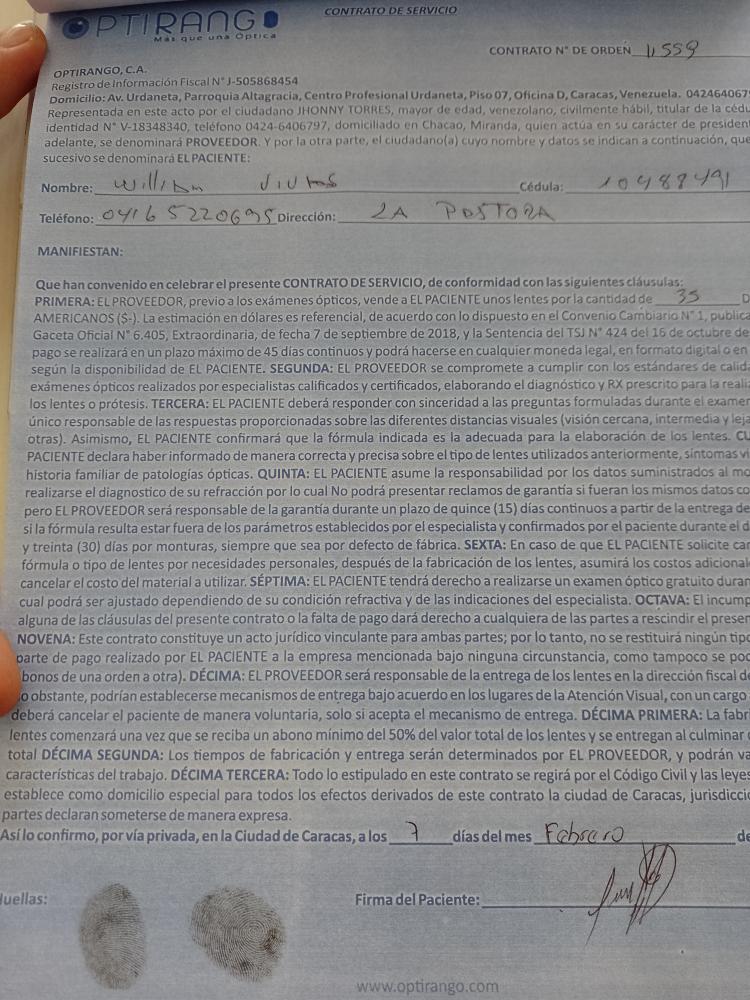 OPTIRANGO
Más que una Óptica
CONTRATO DE SERVICIO
CONTRATO N° DE ORDEN 11559
OPTIRANGO, C.A.
Registro de Información Fiscal N° J-505868454
Domicilio: Av. Urdaneta, Parroquia Altagracia, Centro Profesional Urdaneta, Piso 07, Oficina D, Caracas, Venezuela. 042464067
Representada en este acto por el ciudadano JHONNY TORRES, mayor de edad, venezolano, civilmente hábil, titular de la cédu
identidad N° V-18348340, teléfono 0424-6406797, domiciliado en Chacao, Miranda, quien actúa en su carácter de president
adelante, se denominará PROVEEDOR. Y por la otra parte, el ciudadano(a) cuyo nombre y datos se indican a continuación, que
sucesivo se denominará EL PACIENTE:
Nombre: William Cédula: 10488491
Teléfono: 04165220695 Dirección: LA PASTORA
MANIFIESTAN:
Que han convenido en celebrar el presente CONTRATO DE SERVICIO, de conformidad con las siguientes cláusulas:
PRIMERA: EL PROVEEDOR, previo a los exámenes ópticos, vende a EL PACIENTE unos lentes por la cantidad de 35 D
AMERICANOS ($-). La estimación en dólares es referencial, de acuerdo con lo dispuesto en el Convenio Cambiario N° 1, publica
Gaceta Oficial N° 6.405, Extraordinaria, de fecha 7 de septiembre de 2018, y la Sentencia del TSJ N° 424 del 16 de octubre de
pago se realizará en un plazo máximo de 45 días continuos y podrá hacerse en cualquier moneda legal, en formato digital o en
según la disponibilidad de EL PACIENTE. SEGUNDA: EL PROVEEDOR se compromete a cumplir con los estándares de calida
exámenes ópticos realizados por especialistas calificados y certificados, elaborando el diagnóstico y RX prescrito para la reali
los lentes o prótesis. TERCERA: EL PACIENTE deberá responder con sinceridad a las preguntas formuladas durante el examen
único responsable de las respuestas proporcionadas sobre las diferentes distancias visuales (visión cercana, intermedia y leja
otras). Asimismo, EL PACIENTE confirmará que la fórmula indicada es la adecuada para la elaboración de los lentes. CU
PACIENTE declara haber informado de manera correcta y precisa sobre el tipo de lentes utilizados anteriormente, síntomas vi
historia familiar de patologías ópticas. QUINTA: EL PACIENTE asume la responsabilidad por los datos suministrados al mo
realizarse el diagnostico de su refracción por lo cual No podrá presentar reclamos de garantía si fueran los mismos datos co
pero EL PROVEEDOR será responsable de la garantía durante un plazo de quince (15) días continuos a partir de la entrega de
si la fórmula resulta estar fuera de los parámetros establecidos por el especialista y confirmados por el paciente durante el d
y treinta (30) días por monturas, siempre que sea por defecto de fábrica. SEXTA: En caso de que EL PACIENTE solicite car
fórmula o tipo de lentes por necesidades personales, después de la fabricación de los lentes, asumirá los costos adicional
cancelar el costo del material a utilizar. SÉPTIMA: EL PACIENTE tendrá derecho a realizarse un examen óptico gratuito duran
cual podrá ser ajustado dependiendo de su condición refractiva y de las indicaciones del especialista. OCTAVA: El incump
alguna de las cláusulas del presente contrato o la falta de pago dará derecho a cualquiera de las partes a rescindir el presen
NOVENA: Este contrato constituye un acto jurídico vinculante para ambas partes; por lo tanto, no se restituirá ningún tipo
parte de pago realizado por EL PACIENTE a la empresa mencionada bajo ninguna circunstancia, como tampoco se pod
bonos de una orden a otra). DÉCIMA: EL PROVEEDOR será responsable de la entrega de los lentes en la dirección fiscal de
o obstante, podrían establecerse mecanismos de entrega bajo acuerdo en los lugares de la Atención Visual, con un cargo
deberá cancelar el paciente de manera voluntaria, solo si acepta el mecanismo de entrega. DÉCIMA PRIMERA: La fabri
lentes comenzará una vez que se reciba un abono mínimo del 50% del valor total de los lentes y se entregan al culminar
total DÉCIMA SEGUNDA: Los tiempos de fabricación y entrega serán determinados por EL PROVEEDOR, y podrán va
características del trabajo. DÉCIMA TERCERA: Todo lo estipulado en este contrato se regirá por el Código Civil y las leyes
establece como domicilio especial para todos los efectos derivados de este contrato la ciudad de Caracas, jurisdicció
partes declaran someterse de manera expresa.
Así lo confirmo, por vía privada, en la Ciudad de Caracas, a los 7 días del mes Febrero de
Huellas: Firma del Paciente:
www.optirango.com